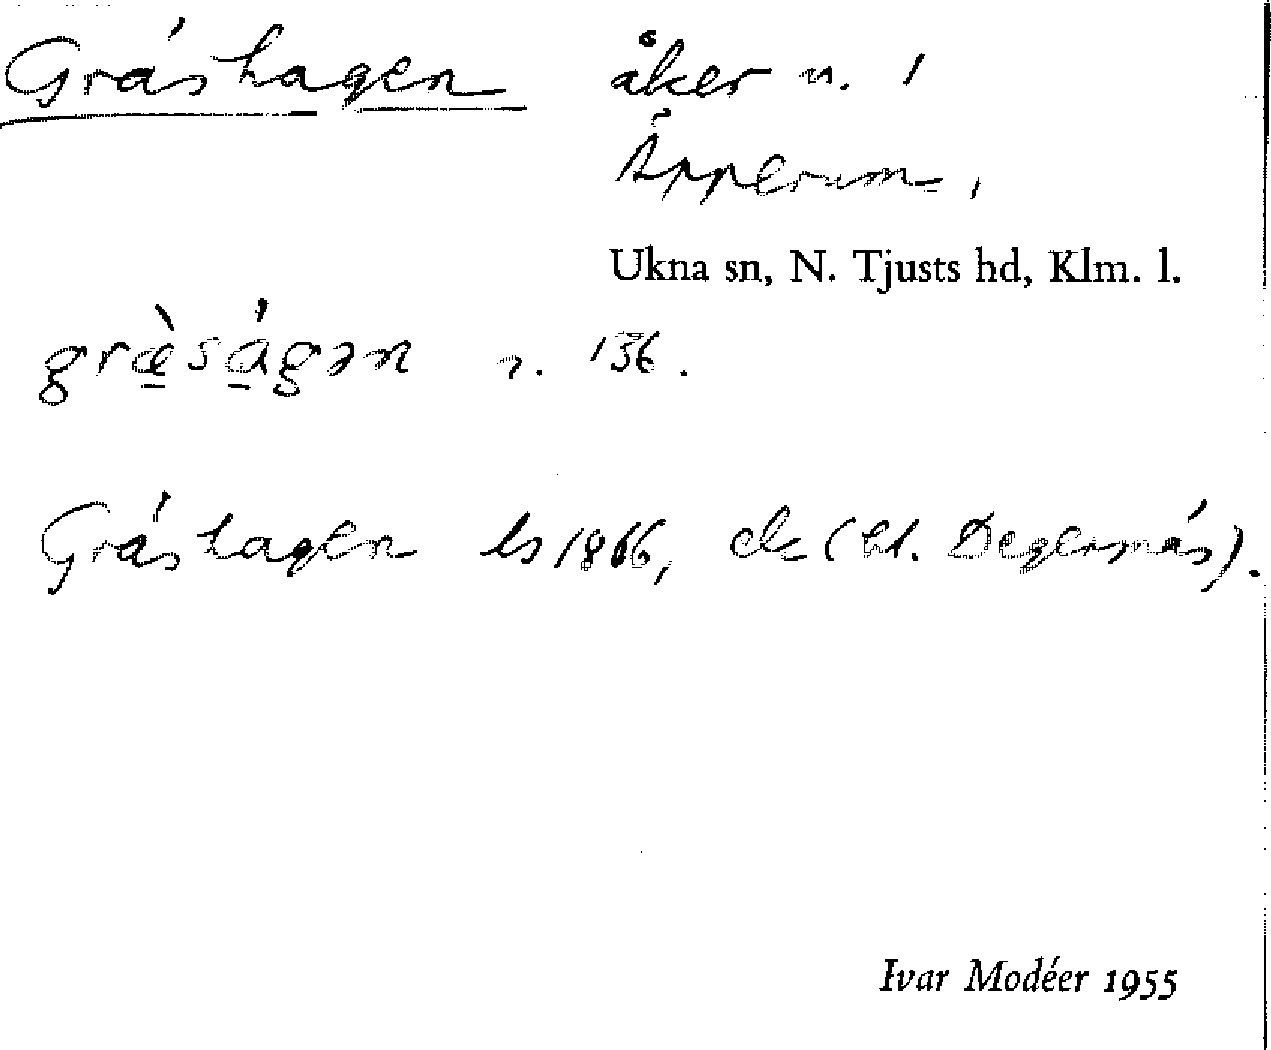 Gräshagen åker n. 1
Äpperum,
Ukna sn, N. Tjusts hd, Klm. l.
græ̀ságən n. 136.
Gräshagen ls 1866, ck (bl. Degernäs).
Ivar Modéer 1955